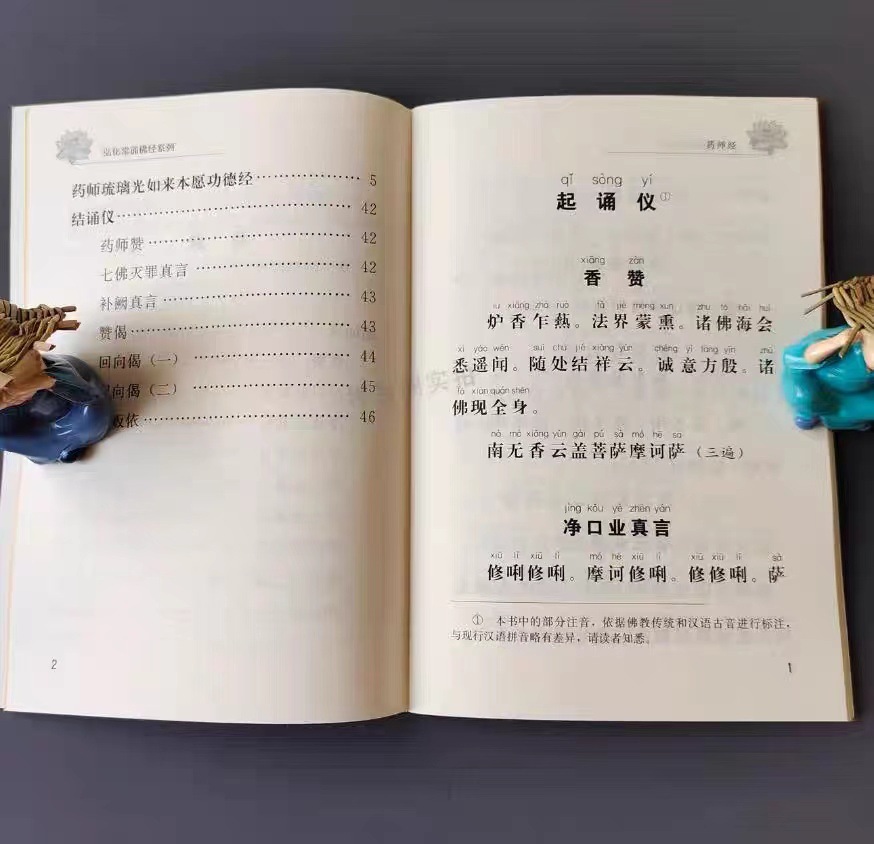 弘化常诵佛经系列
药师琉璃光如来本愿功德经 5
结诵仪 42
药师赞 42
七佛灭罪真言 42
补阙真言 43
赞偈 43
回向偈（一） 44
向偈（二） 45
皈依 46
2
药师经
qǐ sòng yí
起诵仪①
xiāng zàn
香赞
lú xiāng zhà ruò fǎ jiè méng xūn zhū fó hǎi huì
炉香乍爇。法界蒙熏。诸佛海会
xī yáo wén suí chù jié xiáng yún chéng yì fāng yīn zhū
悉遥闻。随处结祥云。诚意方殷。诸
fó xiàn quán shēn
佛现全身。
nā mó xiāng yún gài pú sà mó hē sà
南无香云盖菩萨摩诃萨（三遍）
jìng kǒu yè zhēn yán
净口业真言
xiū lī xiū lī mó hē xiū lī xiū xiū lī sà
修唎修唎。摩诃修唎。修修唎。萨
① 本书中的部分注音，依据佛教传统和汉语古音进行标注，
与现行汉语拼音略有差异，请读者知悉。
1